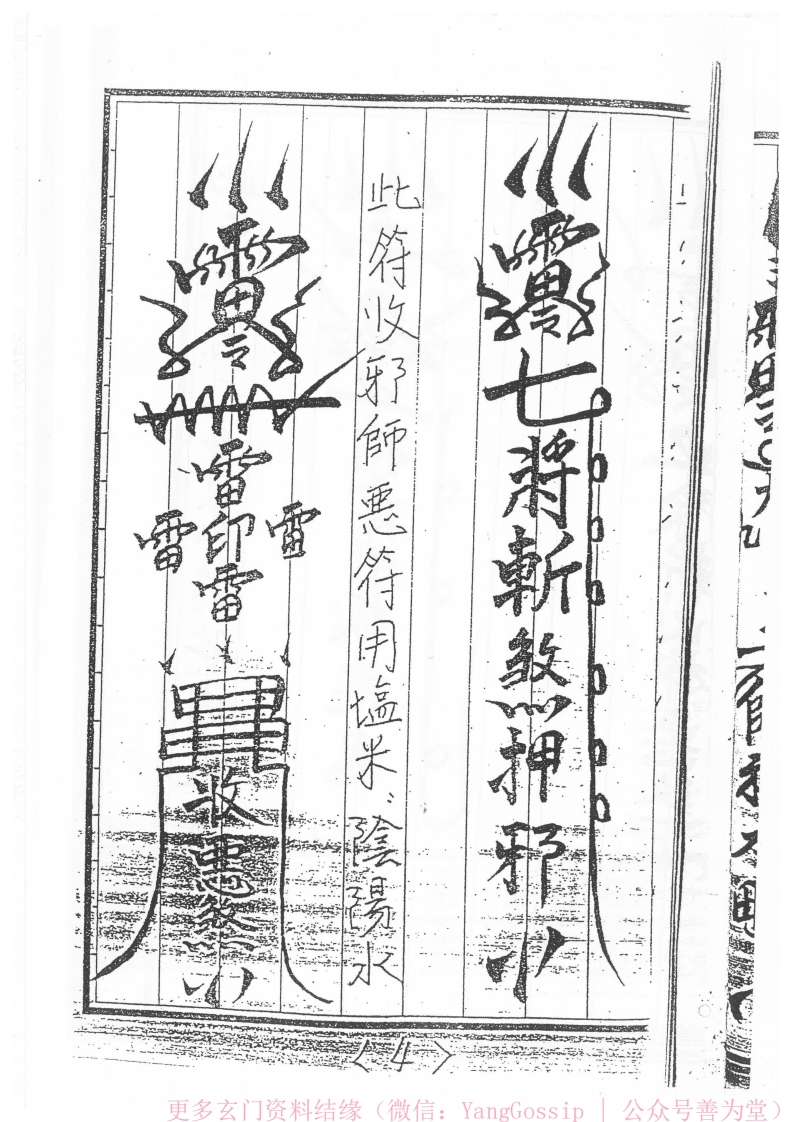 七將斬煞押邪
此符收邪師悪符用塩米、陰陽水
雷
雷印雷
雷
收悪煞
〈4〉
更多玄门资料结缘（微信：YangGossip | 公众号善为堂）